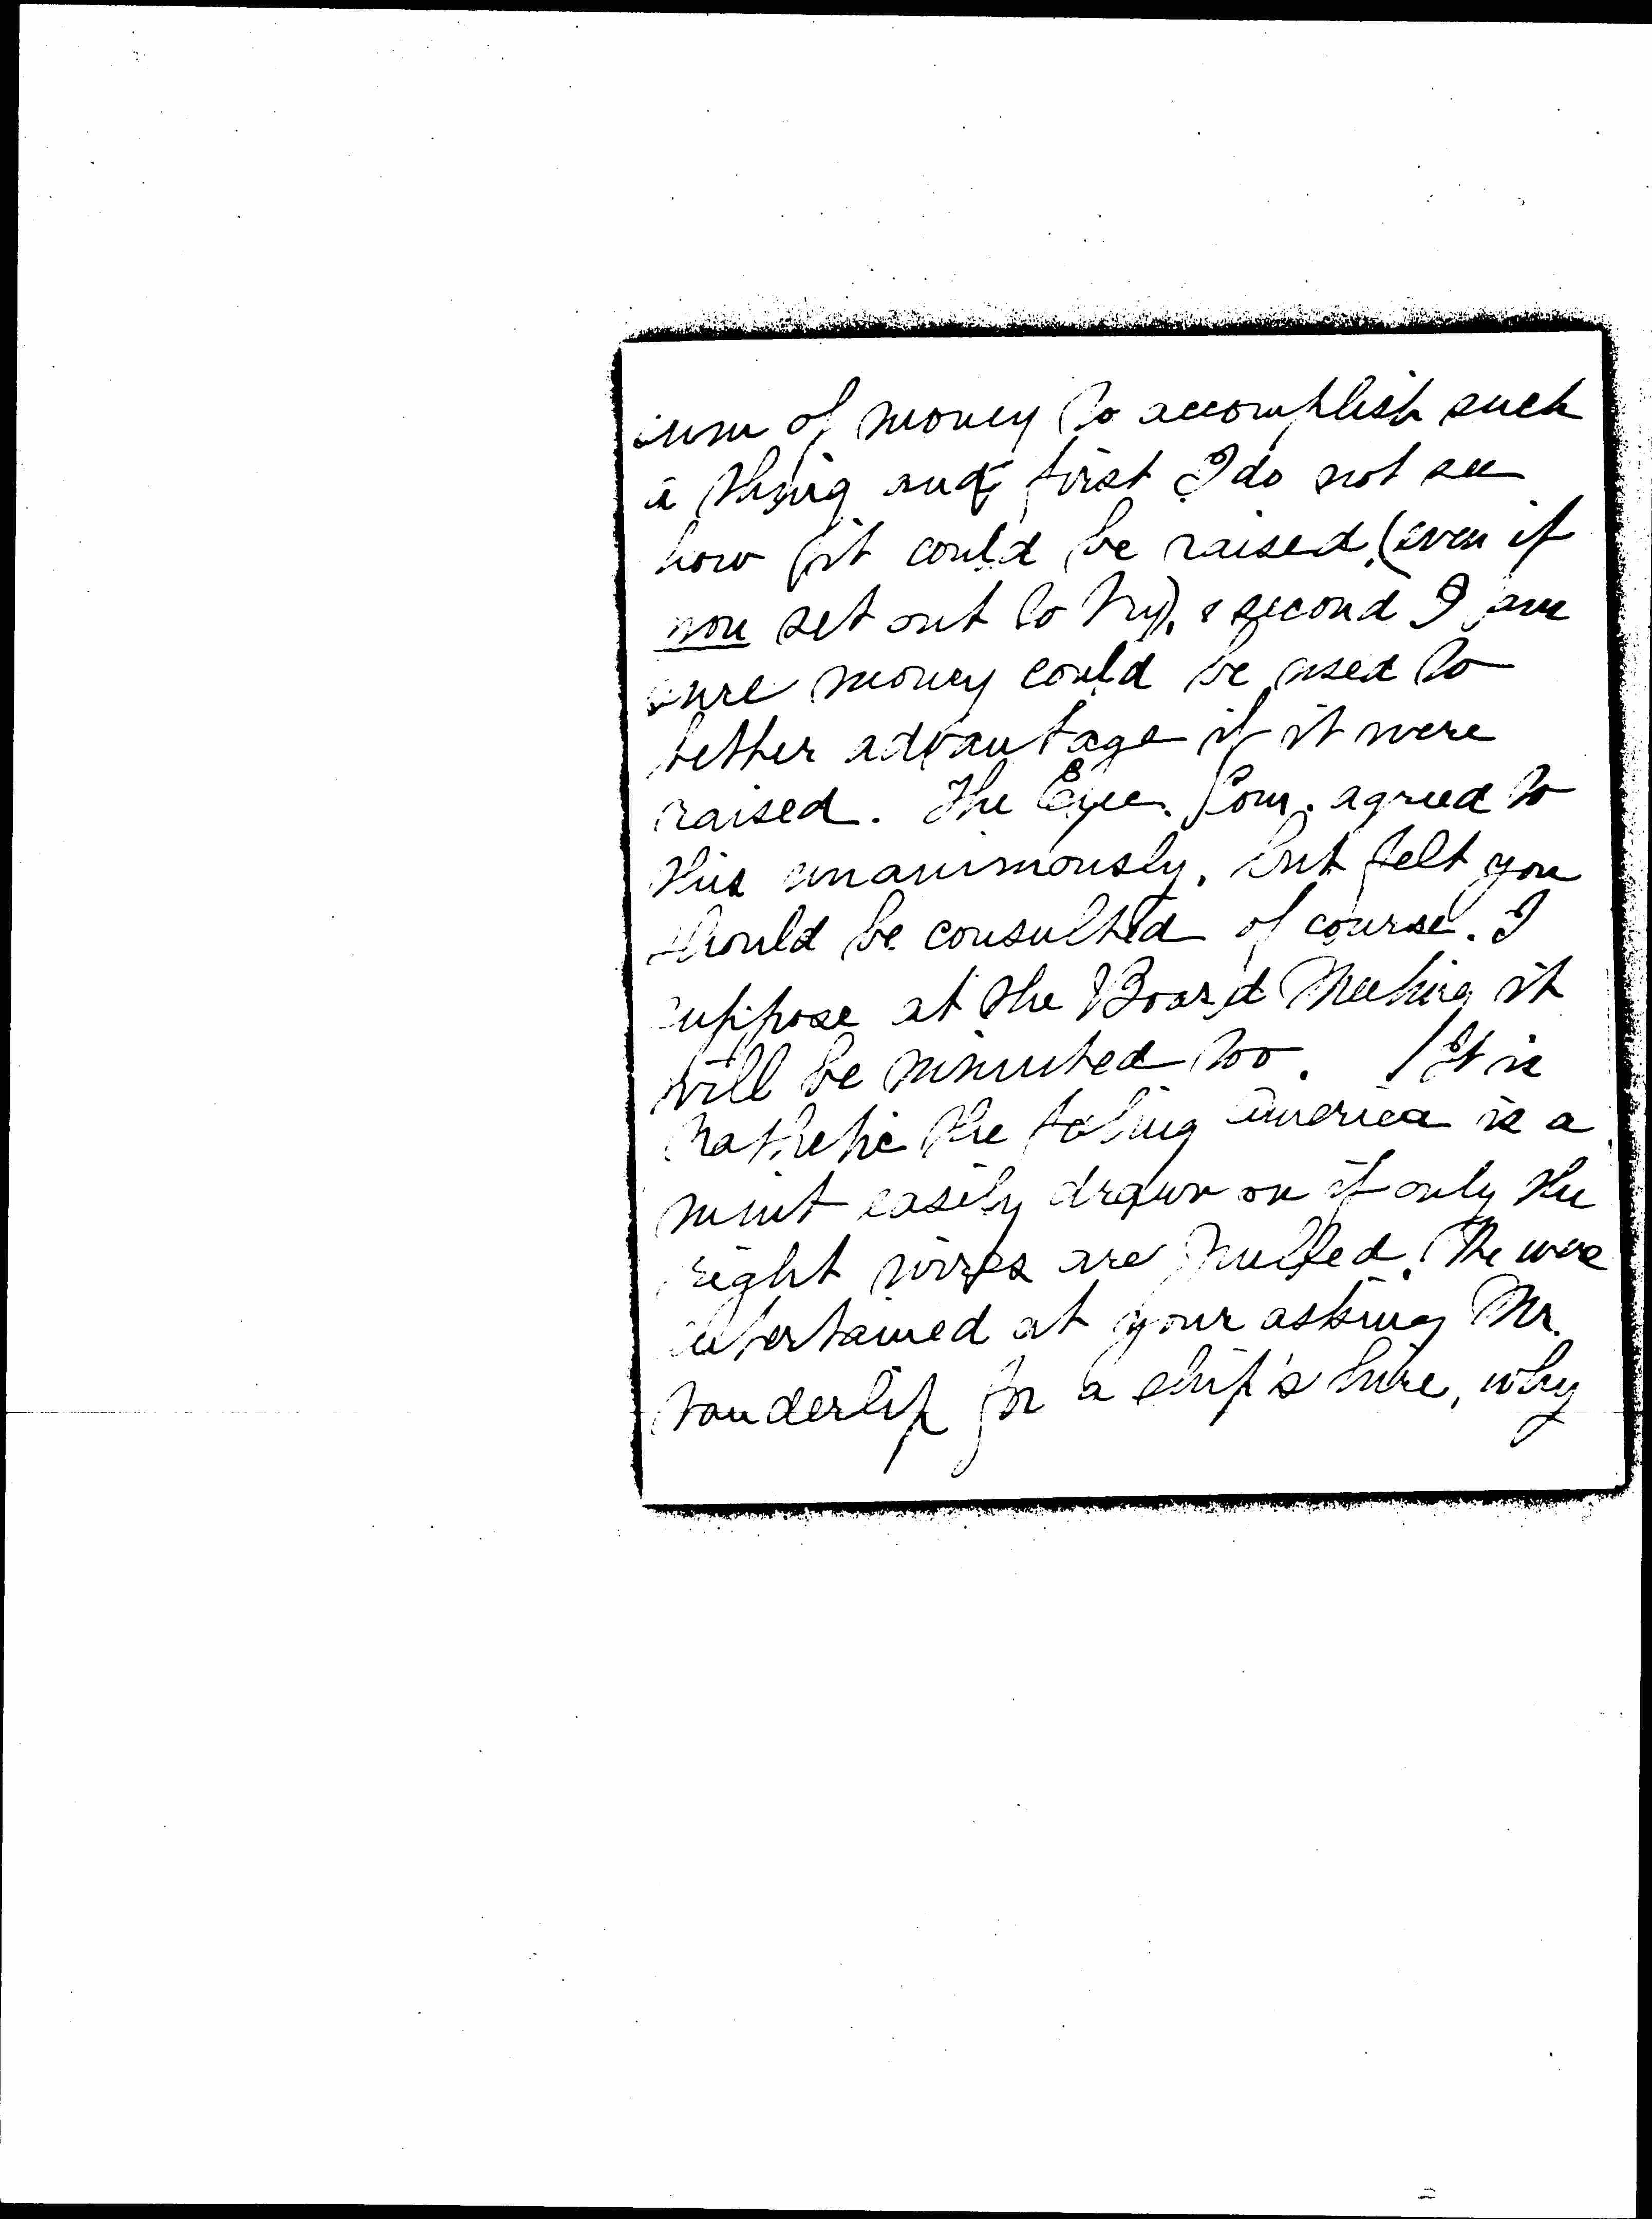 sum of money to accomplish such
a thing and first I do not see
how it could be raised, (even if
you set out to try), & second I am
sure money could be used to
better advantage if it were
raised. The Exec. Com. agreed to
this unanimously, but felt you
should be consulted of course. I
suppose at the Board Meeting it
will be minuted too. It is
pathetic the feeling America is a
mint easily drawn on if only the
right wires are pulled. We were
entertained at your asking Mr.
Vanderlip for a ship's hire, why